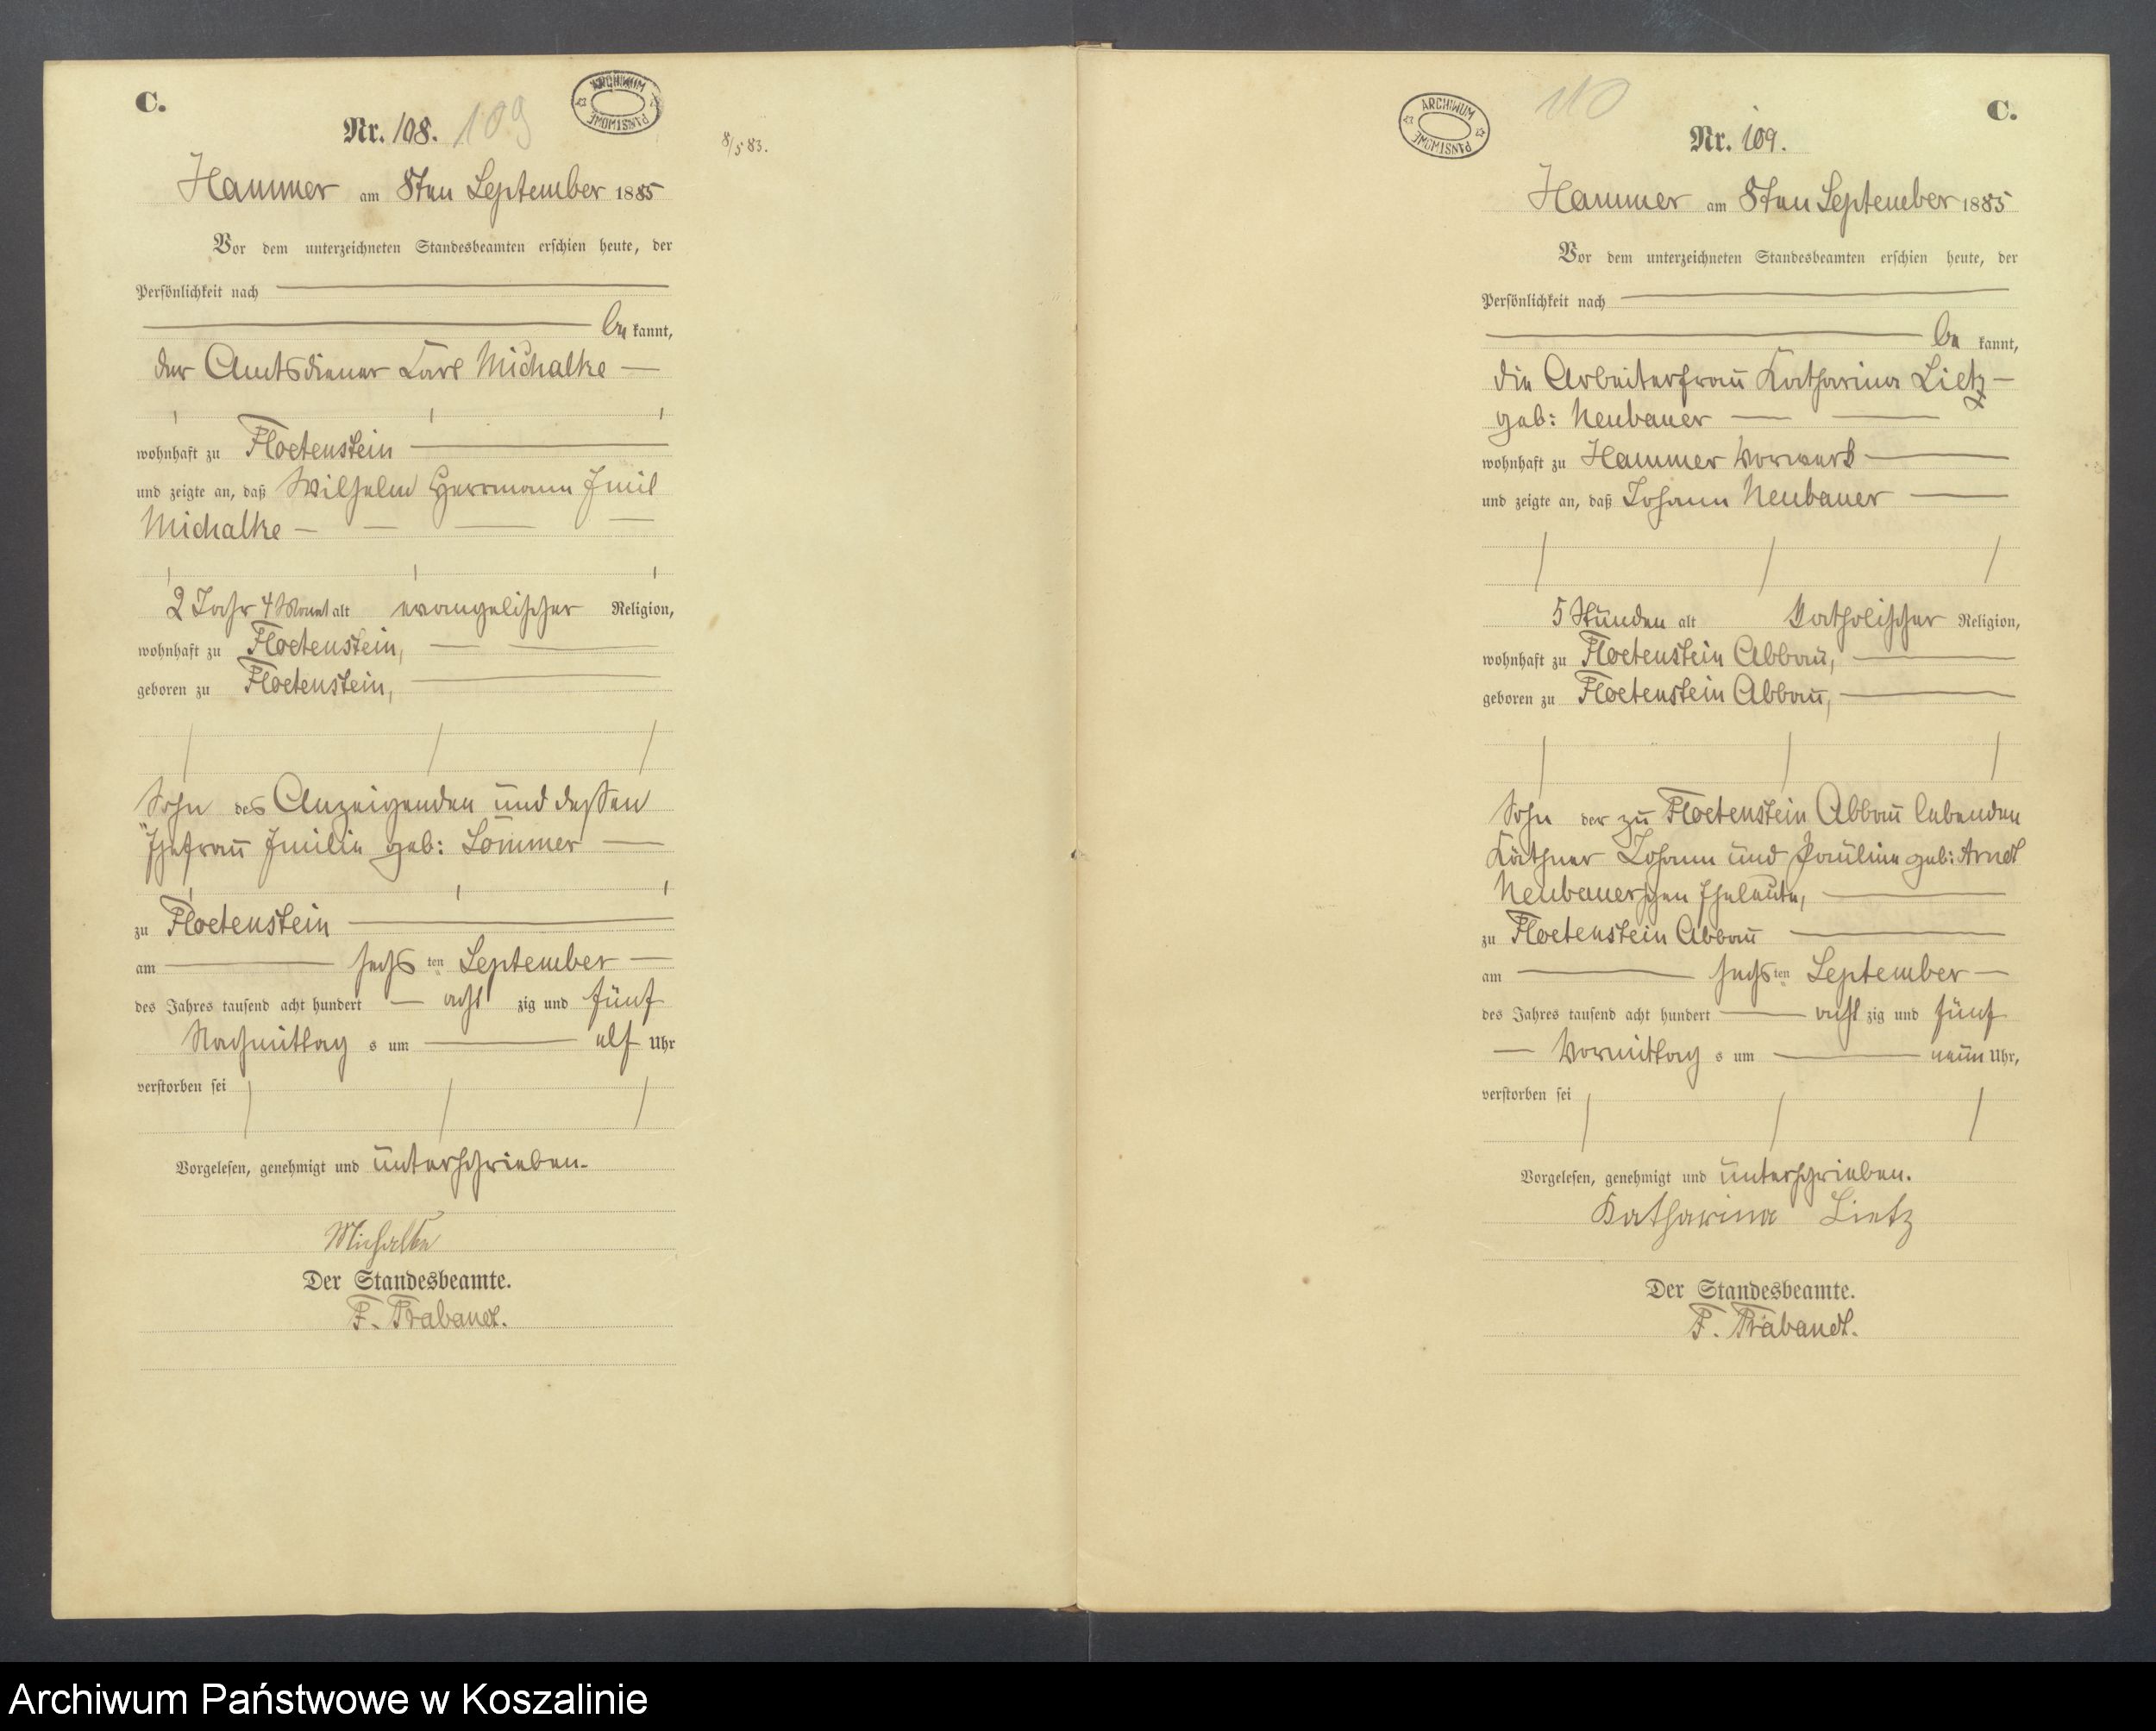 C.
Nr. 108. 109
ARCHIWUM PAŃSTWOWE
8/5 83.
Hammer am 8ten September 1885
Vor dem unterzeichneten Standesbeamten erschien heute, der
Persönlichkeit nach
be kannt,
der Amtsdiener Carl Michalke
wohnhaft zu Floetenstein
und zeigte an, daß Wilhelm Herrmann Emil
Michalke
2 Jahr 4 Monat alt evangelischer Religion,
wohnhaft zu Floetenstein,
geboren zu Floetenstein,
Sohn des Anzeigenden und dessen
Ehefrau Emilie geb: Sommer
zu Floetenstein
am sechs ten September
des Jahres tausend acht hundert acht zig und fünf
Nachmittag s um elf Uhr
verstorben sei
Vorgelesen, genehmigt und unterschrieben.
Michalke
Der Standesbeamte.
F. Trabandt.
110
ARCHIWUM PAŃSTWOWE
C.
Nr. 109.
Hammer am 8ten September 1885
Vor dem unterzeichneten Standesbeamten erschien heute, der
Persönlichkeit nach
be kannt,
die Arbeiterfrau Katharina Lietz
geb: Neubauer
wohnhaft zu Hammer Vorwerk
und zeigte an, daß Johann Neubauer
5 Stunden alt katholischer Religion,
wohnhaft zu Floetenstein Abbau,
geboren zu Floetenstein Abbau,
Sohn der zu Floetenstein Abbau lebenden
Käthner Johann und Pauline geb: Arndt
Neubauerschen Eheleute,
zu Floetenstein Abbau
am sechs ten September
des Jahres tausend acht hundert acht zig und fünf
Vormittag s um neun Uhr,
verstorben sei
Vorgelesen, genehmigt und unterschrieben.
Katharina Lietz
Der Standesbeamte.
F. Trabandt.
Archiwum Państwowe w Koszalinie